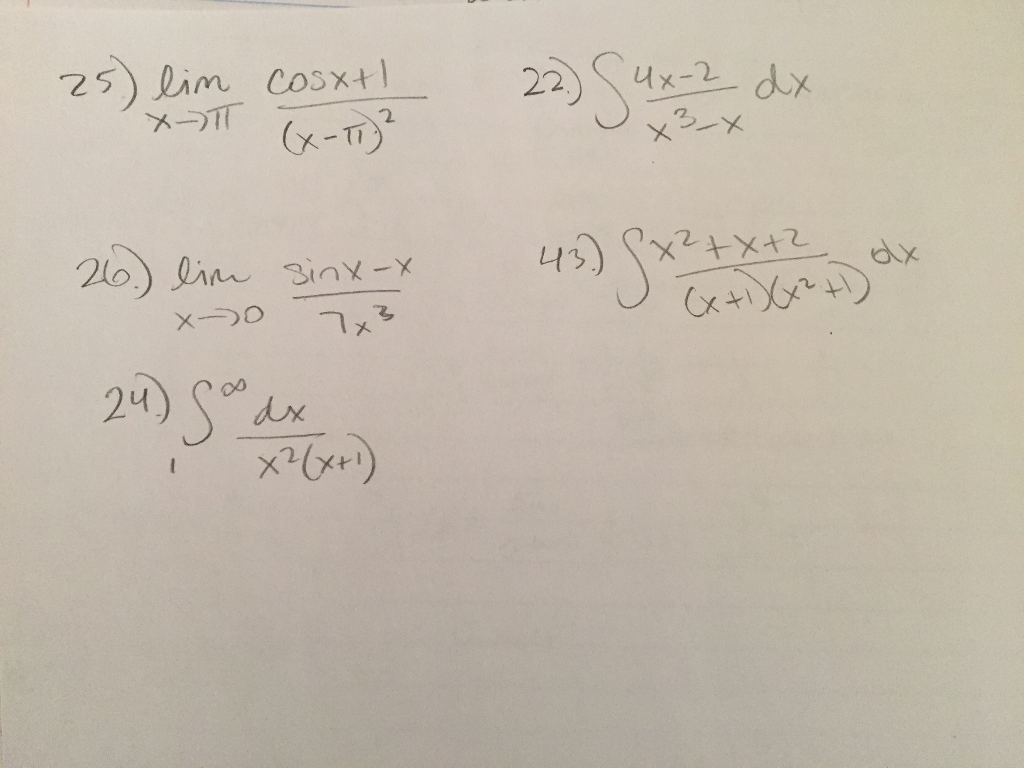 25.) lim x→π (cosx+1)/(x-π)²
22.) ∫ (4x-2)/(x³-x) dx
26.) lim x→0 (sinx-x)/(7x³)
43.) ∫ (x²+x+2)/((x+1)(x²+1)) dx
24.) ∫₁^∞ dx/(x²(x+1))